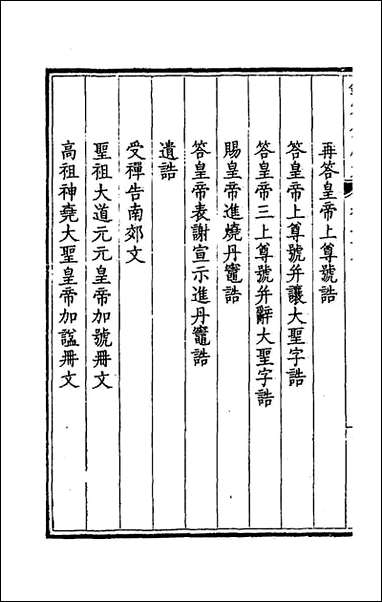 再答皇帝上尊號誥
答皇帝上尊號并讓大聖字誥
答皇帝三上尊號并辭大聖字誥
賜皇帝進燒丹竈誥
答皇帝表謝宣示進丹竈誥
遺誥
受禪告南郊文
聖祖大道元元皇帝加號冊文
高祖神堯大聖皇帝加諡冊文